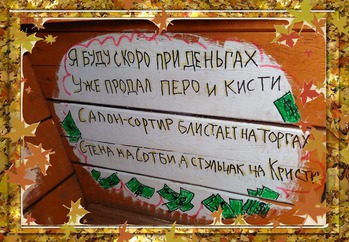 Я БУДУ СКОРО ПРИ ДЕНЬГАХ
УЖЕ ПРОДАЛ ПЕРО И КИСТИ
САЛОН-СОРТИР БЛИСТАЕТ НА ТОРГАХ
СТЕНА НА СОТБИ А СТУЛЬЧАК НА КРИСТИ